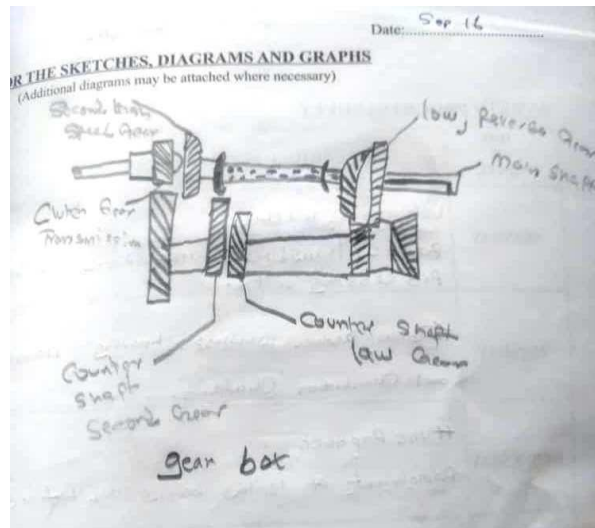 Date: Sep 16
OR THE SKETCHES, DIAGRAMS AND GRAPHS
(Additional diagrams may be attached where necessary)
Second
Speed Gear
low, Reverse Gear
Main Shaft
Clutch Gear
Transmission
Counter Shaft
law Gear
Counter
Shaft
Second Gear
gear box